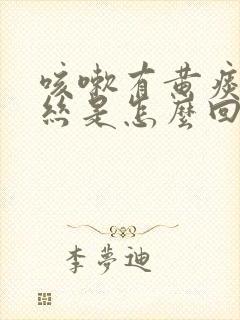 咳嗽有黄痰
絲是怎麼回
李夢迪